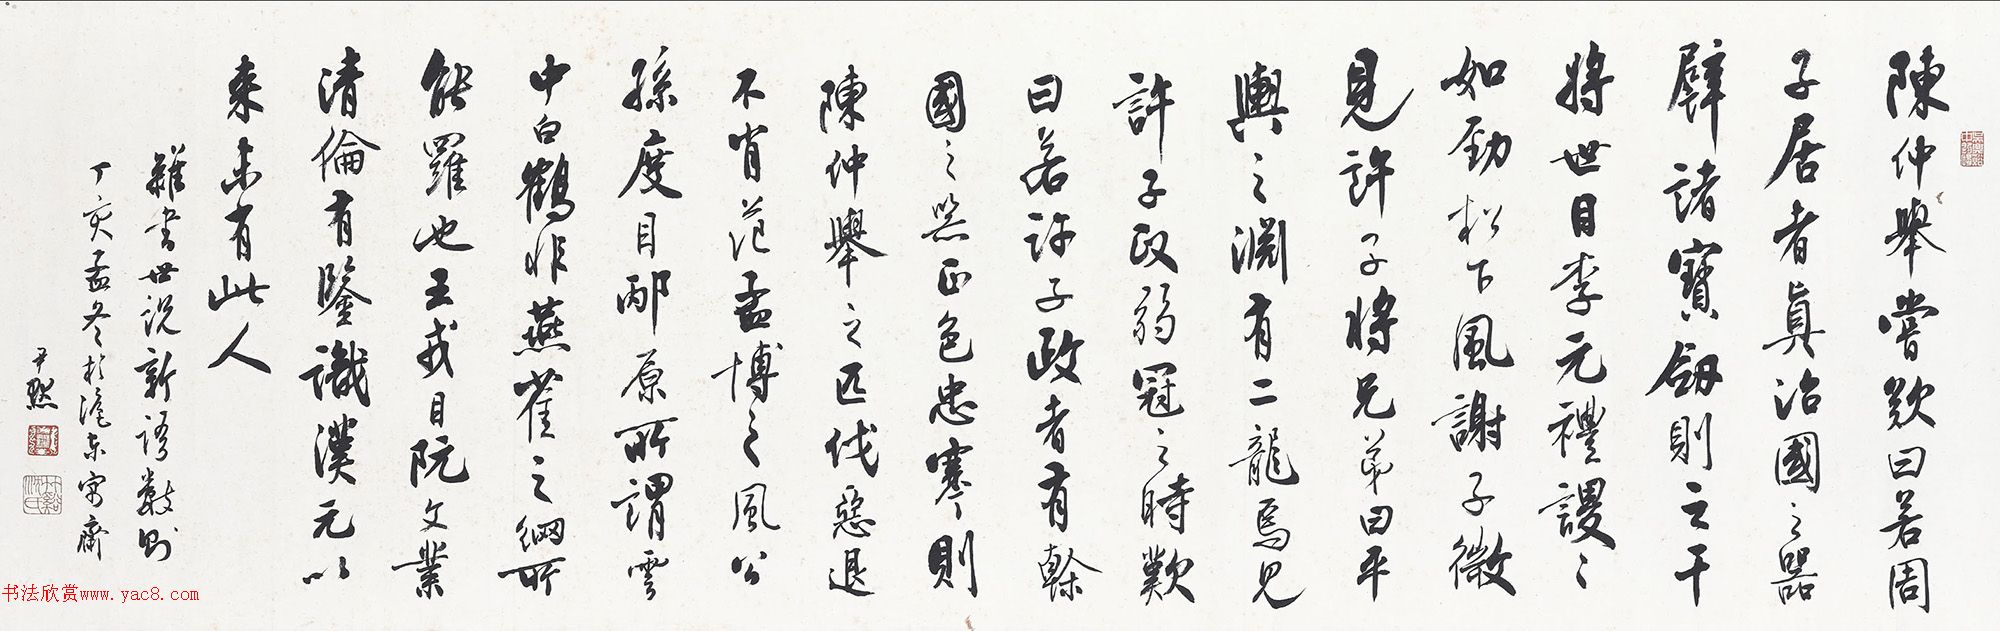 陳仲舉嘗歎曰若周
子居者真治國之器
譬諸寶劒則之干
將世目李元禮謖〻
如勁松下風謝子微
見許子將兄弟曰平
輿之淵有二龍焉見
許子政弱冠之時歎
曰若許子政者有榦
國之器正色忠謇則
陳仲舉之匹伐惡退
不肖范孟博之風公
孫度目邴原所謂雲
中白鶴非燕雀之網所
能羅也王戎目阮文業
清倫有鑒識漢元以
來未有此人
雜書世說新語數則
丁亥孟冬於滬東寓齋
尹默
书法欣赏www.yac8.com